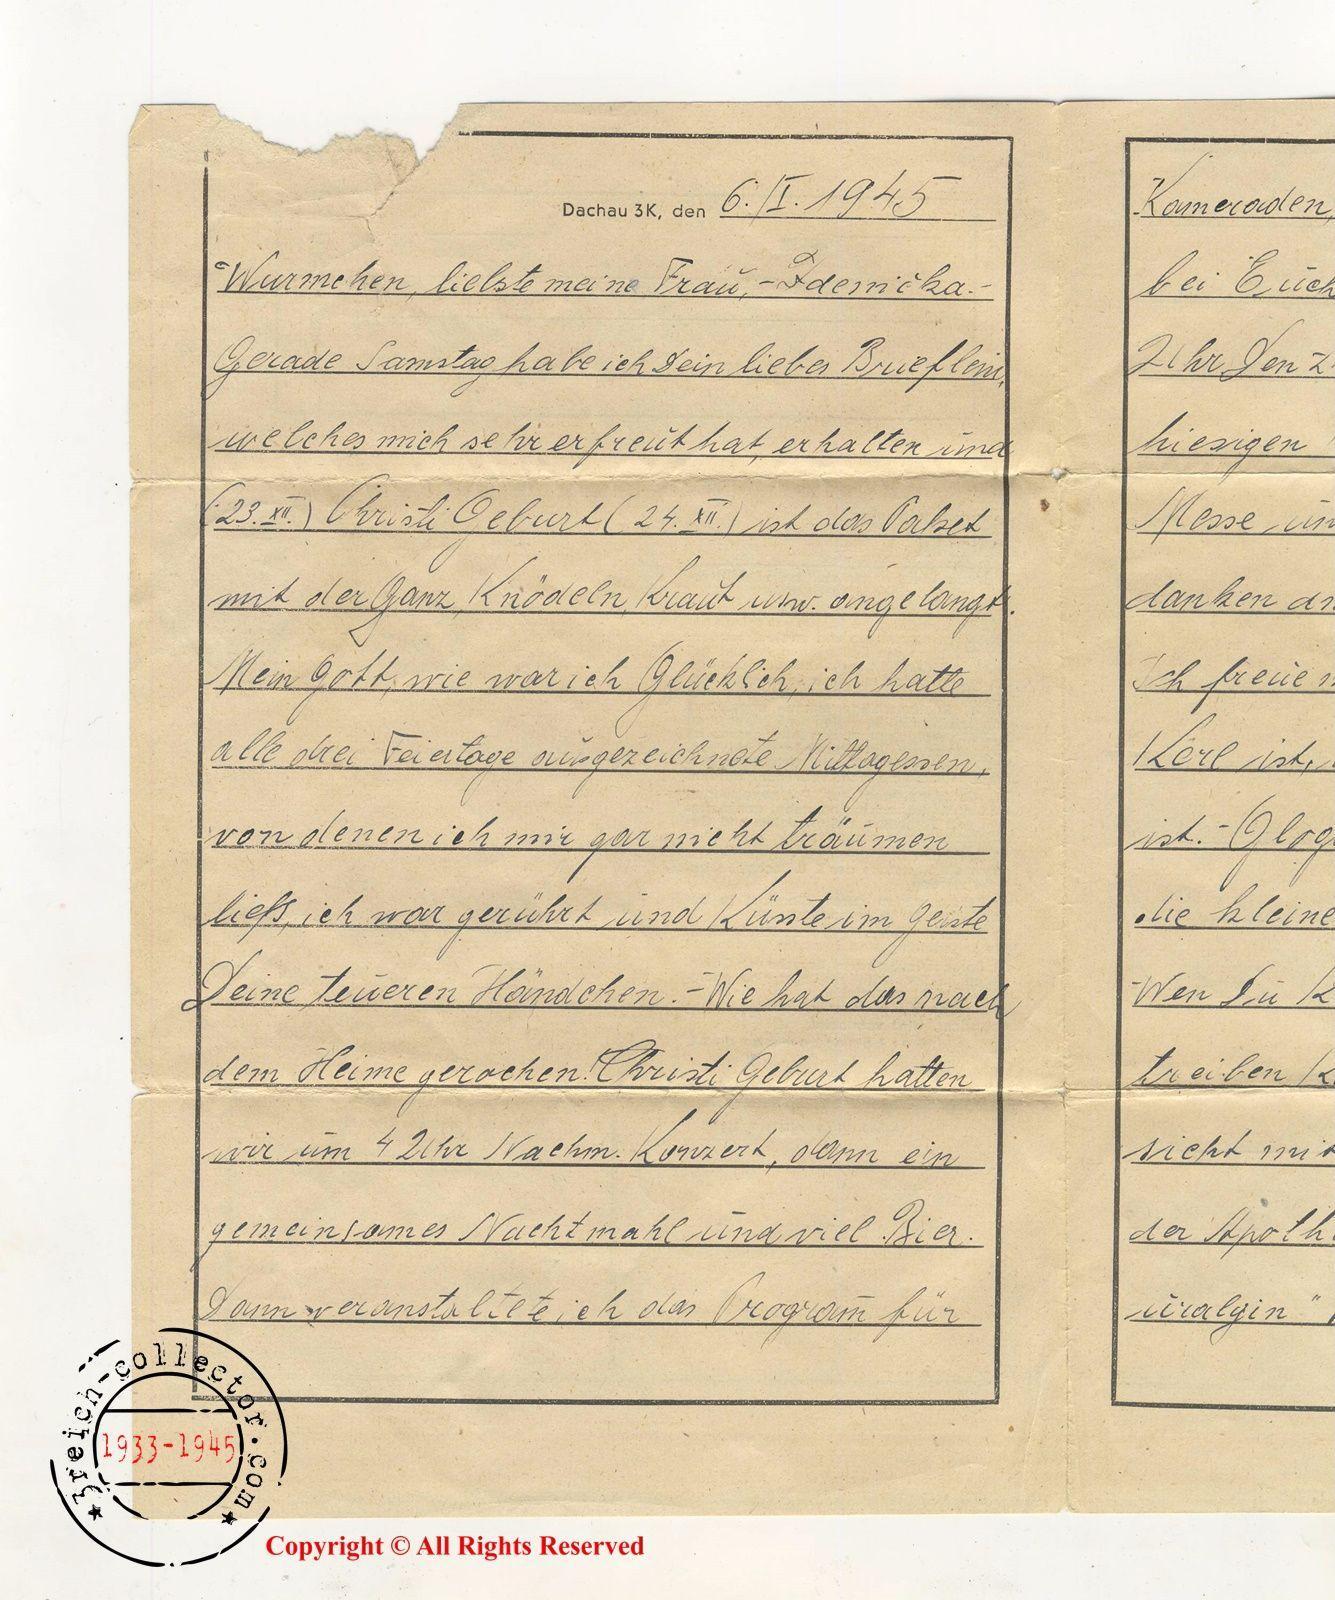 Dachau 3K, den 6./I. 1945
Wurmchen, liebste meine Frau, - Zdenička.-
Gerade Samstag habe ich Dein liebes Brieflein,
welches mich sehr erfreut hat, erhalten und
(23. XII.) Christi Geburt (24. XII.) ist das Paket
mit der Ganz, Knödeln, Kraut usw. angelangt.
Mein Gott, wie war ich Glücklich, ich hatte
alle drei Feiertage ausgezeichnete Mittagessen,
von denen ich mir gar nicht träumen
ließ, ich war gerührt und Küsste im Geiste
Deine teueren Händchen.- Wie hat das nach
dem Heime gerochen! Christi Geburt hatten
wir um 4 Uhr Nachm. Konzert, dann ein
gemeinsames Nachtmahl und viel Bier.
Dann veranstaltete ich das Program für
Kameraden,
bei Euch
Uhr Den 2
hiesigen
Messe un
danken an
Ich freue m
Kerl ist,
ist.- Glog
die kleine
Wen Du K
treiben K
sicht mit
der Apoth
uralgin"
3reich-collector.com
1933-1945
Copyright © All Rights Reserved